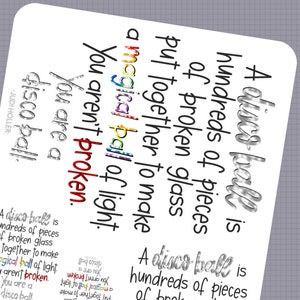 A disco ball is
hundreds of pieces
of broken glass
put together to make
a magical ball of light.
You aren't broken
You are a
disco ball.
JUDI HOLLER
A disco ball is
hundreds of pieces
of broken glass
To together to make
agical ball of light
u aren't broken.
you are a
disco ball
A disco ball is
hundreds of pieces
of broken glass